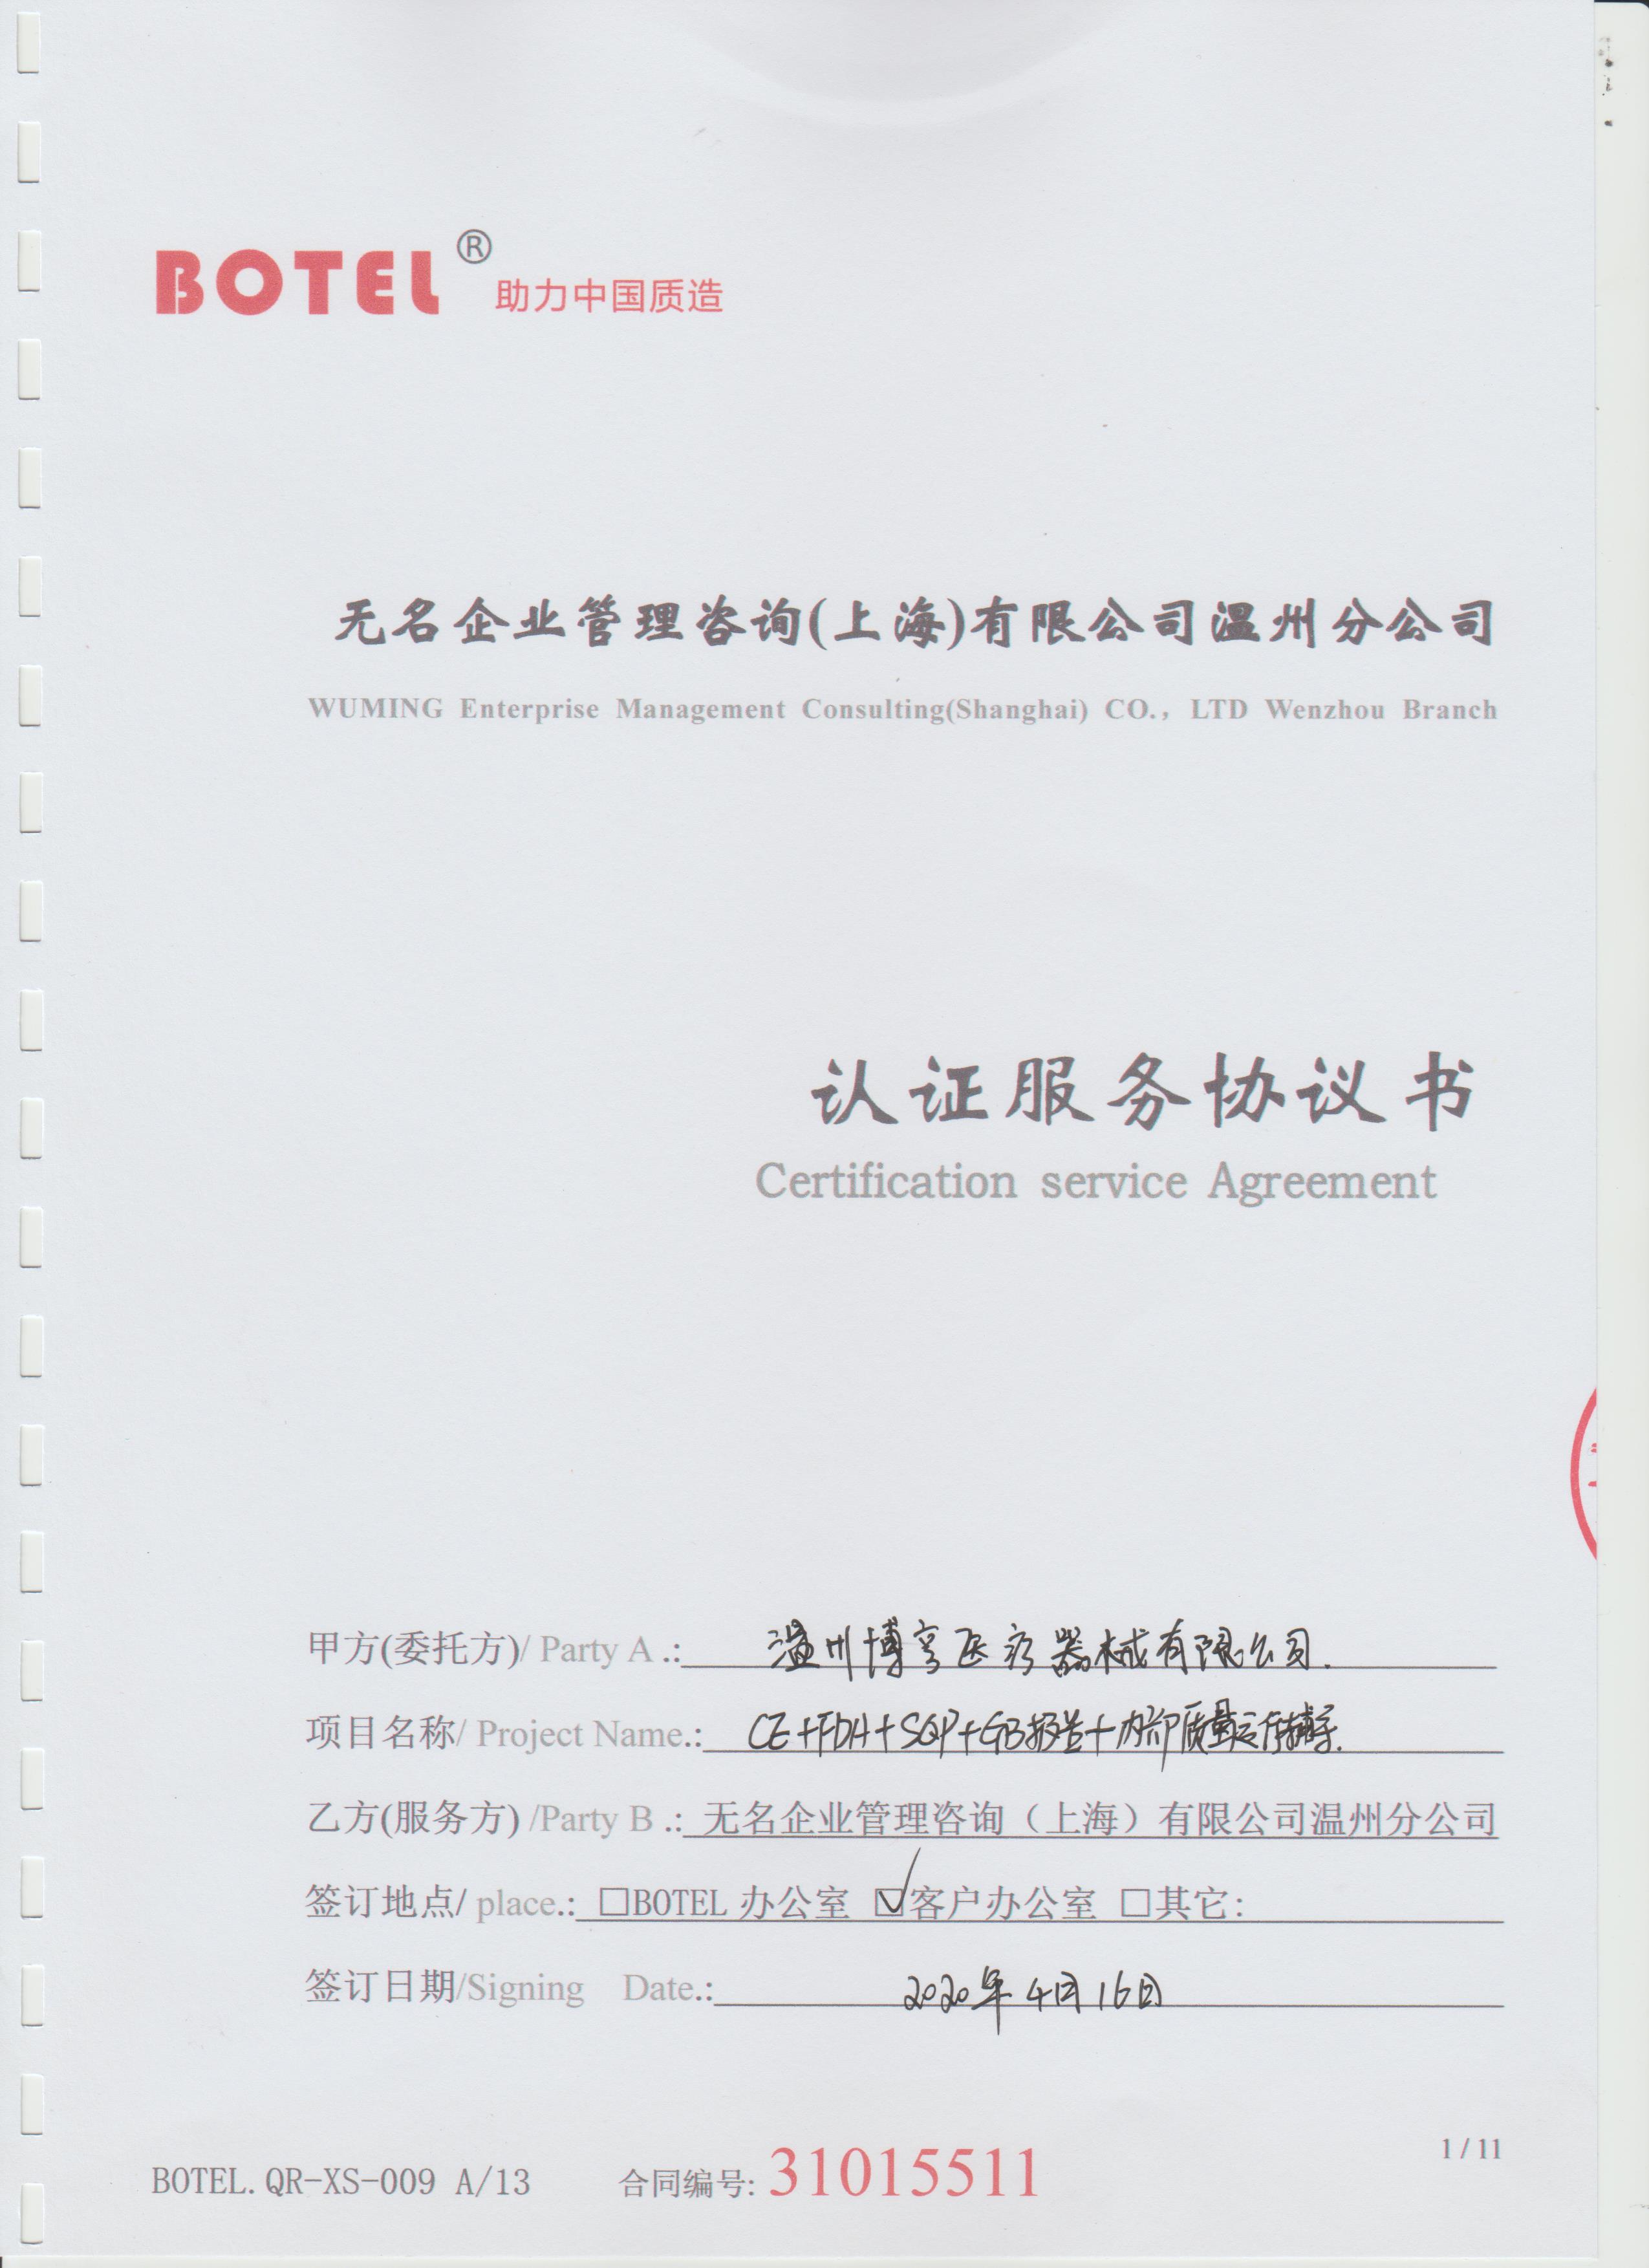 BOTEL® 助力中国质造
无名企业管理咨询(上海)有限公司温州分公司
WUMING Enterprise Management Consulting(Shanghai) CO., LTD Wenzhou Branch
认证服务协议书
Certification service Agreement
甲方(委托方)/ Party A .: 温州博亨医疗器械有限公司.
项目名称/ Project Name.: CE+FDA+SGP+GB报告+内部质量运作辅导.
乙方(服务方) /Party B .: 无名企业管理咨询（上海）有限公司温州分公司
签订地点/ place.: □BOTEL 办公室 ☑客户办公室 □其它:
签订日期/Signing Date.: 2020年4月16日
1 / 11
BOTEL. QR-XS-009 A/13 合同编号: 31015511